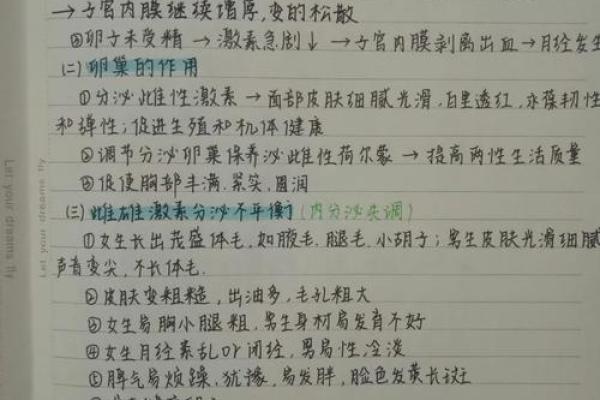 →子宫内膜继续增厚,变的松散
③卵子未受精 → 激素急剧↓ → 子宫内膜剥离出血→月经发生
(二)卵巢的作用
①分泌雌性激素 → 面部皮肤细腻光滑,白里透红,永葆韧性
和弹性;促进生殖和机体健康
②调节分泌卵巢保养泌雌性荷尔蒙 → 提高两性生活质量
③促使胸部丰满、紧实、圆润
(三)雌雄激素分泌不平衡(内分泌失调)
①女生长出茂盛体毛,如腹毛、腿毛、小胡子;男生皮肤光滑细腻
声音变尖,不长体毛.
②皮肤变粗糙,出油多,毛孔粗大
③女生易胸小腿粗,男生身材易发育不好
④女生月经紊乱or闭经,男易性冷淡
⑤脾气易烦躁、犹豫,易发胖,脸色发黄长斑
Let your dreams fly
Let your dreams fly